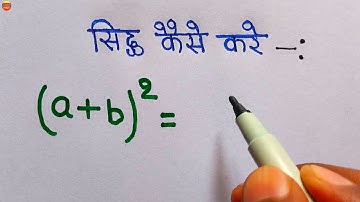 सिद्ध कैसे करे –:
(a+b)² =